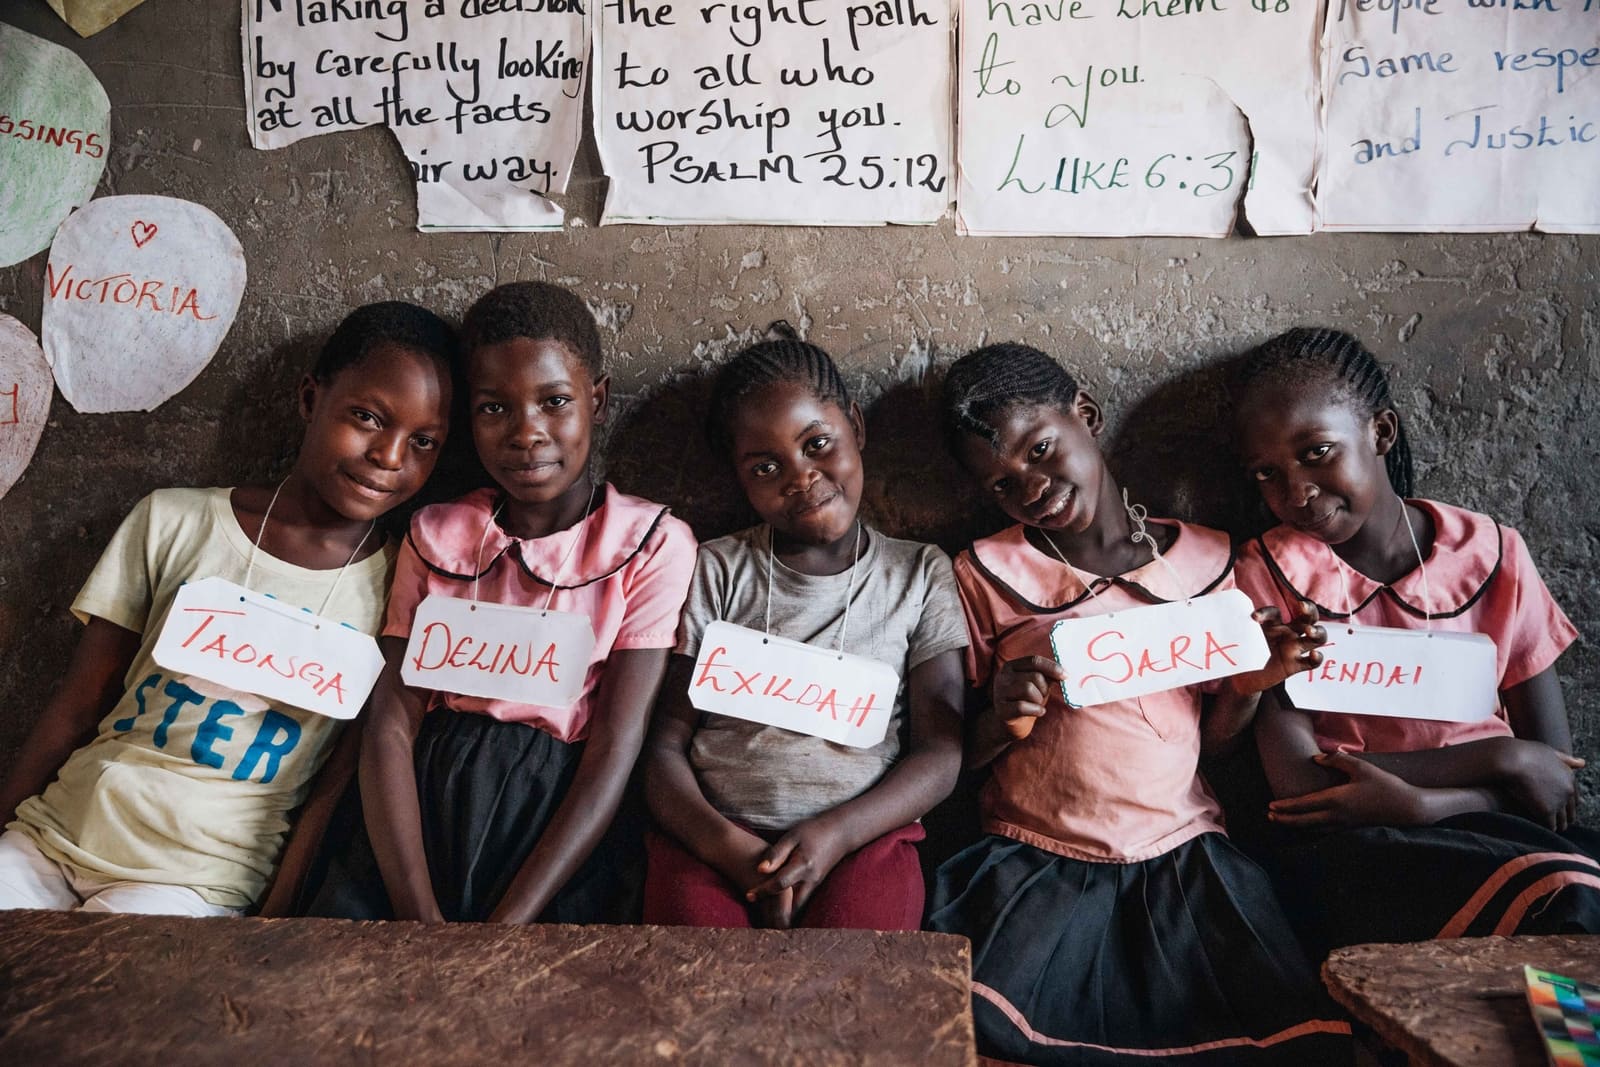 Making a decision
by carefully looking
at all the facts
air way.
the right path
to all who
worship you.
PSALM 25:12
have them do
to you.
LUKE 6:31
People with
Same respe
and Justic
SSINGS
VICTORIA
TAONGA
STER
DELINA
EXILDAH
SARA
TENDAI